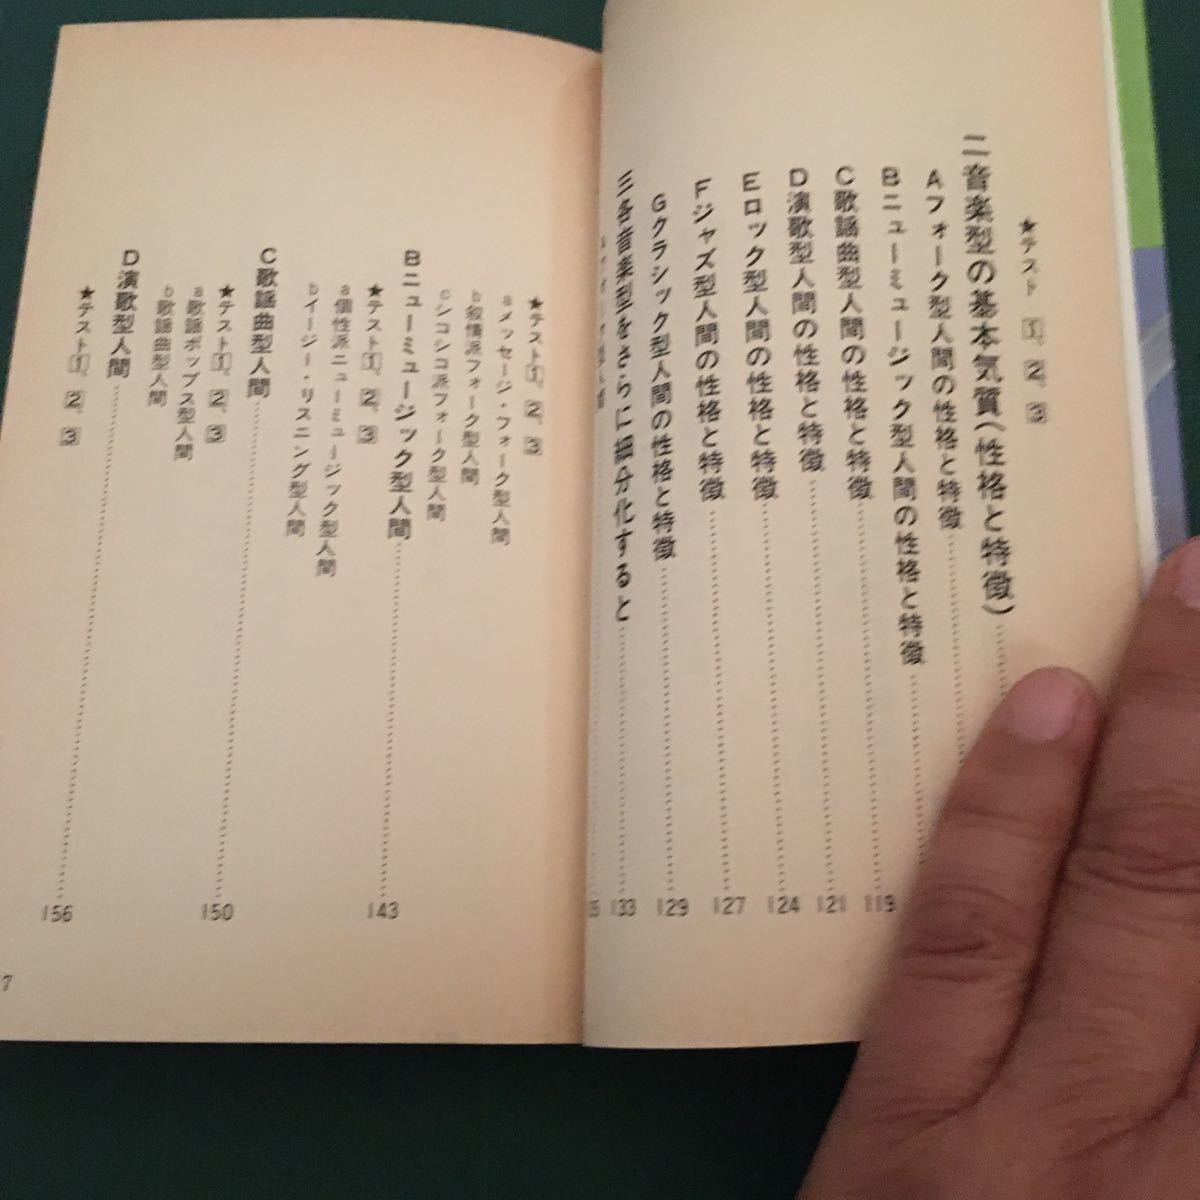 ★テスト 1、2、3
二音楽型の基本気質(性格と特徴)
Aフォーク型人間の性格と特徴
Bニューミュージック型人間の性格と特徴
C歌謡曲型人間の性格と特徴……119
D演歌型人間の性格と特徴……121
Eロック型人間の性格と特徴……124
Fジャズ型人間の性格と特徴……127
Gクラシック型人間の性格と特徴……129
三各音楽型をさらに細分化すると……133
★テスト1、2、3
aメッセージ・フォーク型人間
b叙情派フォーク型人間
cシコシコ派フォーク型人間
Bニューミュージック型人間……143
★テスト1、2、3
a個性派ニューミュージック型人間
bイージー・リスニング型人間
C歌謡曲型人間……150
★テスト1、2、3
a歌謡ポップス型人間
b歌謡曲型人間
D演歌型人間……156
★テスト1、2、3
7